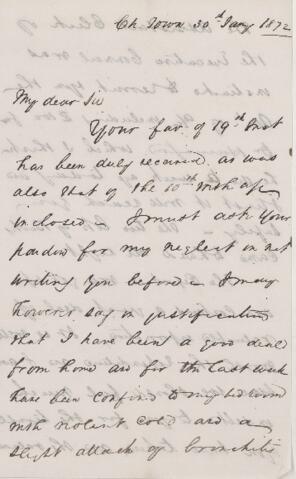 Ch. Town 30th Jany 1872
My dear Sir
Your fav. of 19th Inst
has been duly received as was
also that of the 10th with a/c
inclosed – I must ask your
pardon for my neglect in not
writing you before – I may
however say in justification
that I have been a good deal
from home and for the last week
have been confined to my bed room
with violent cold and a
slight attack of bronchitis